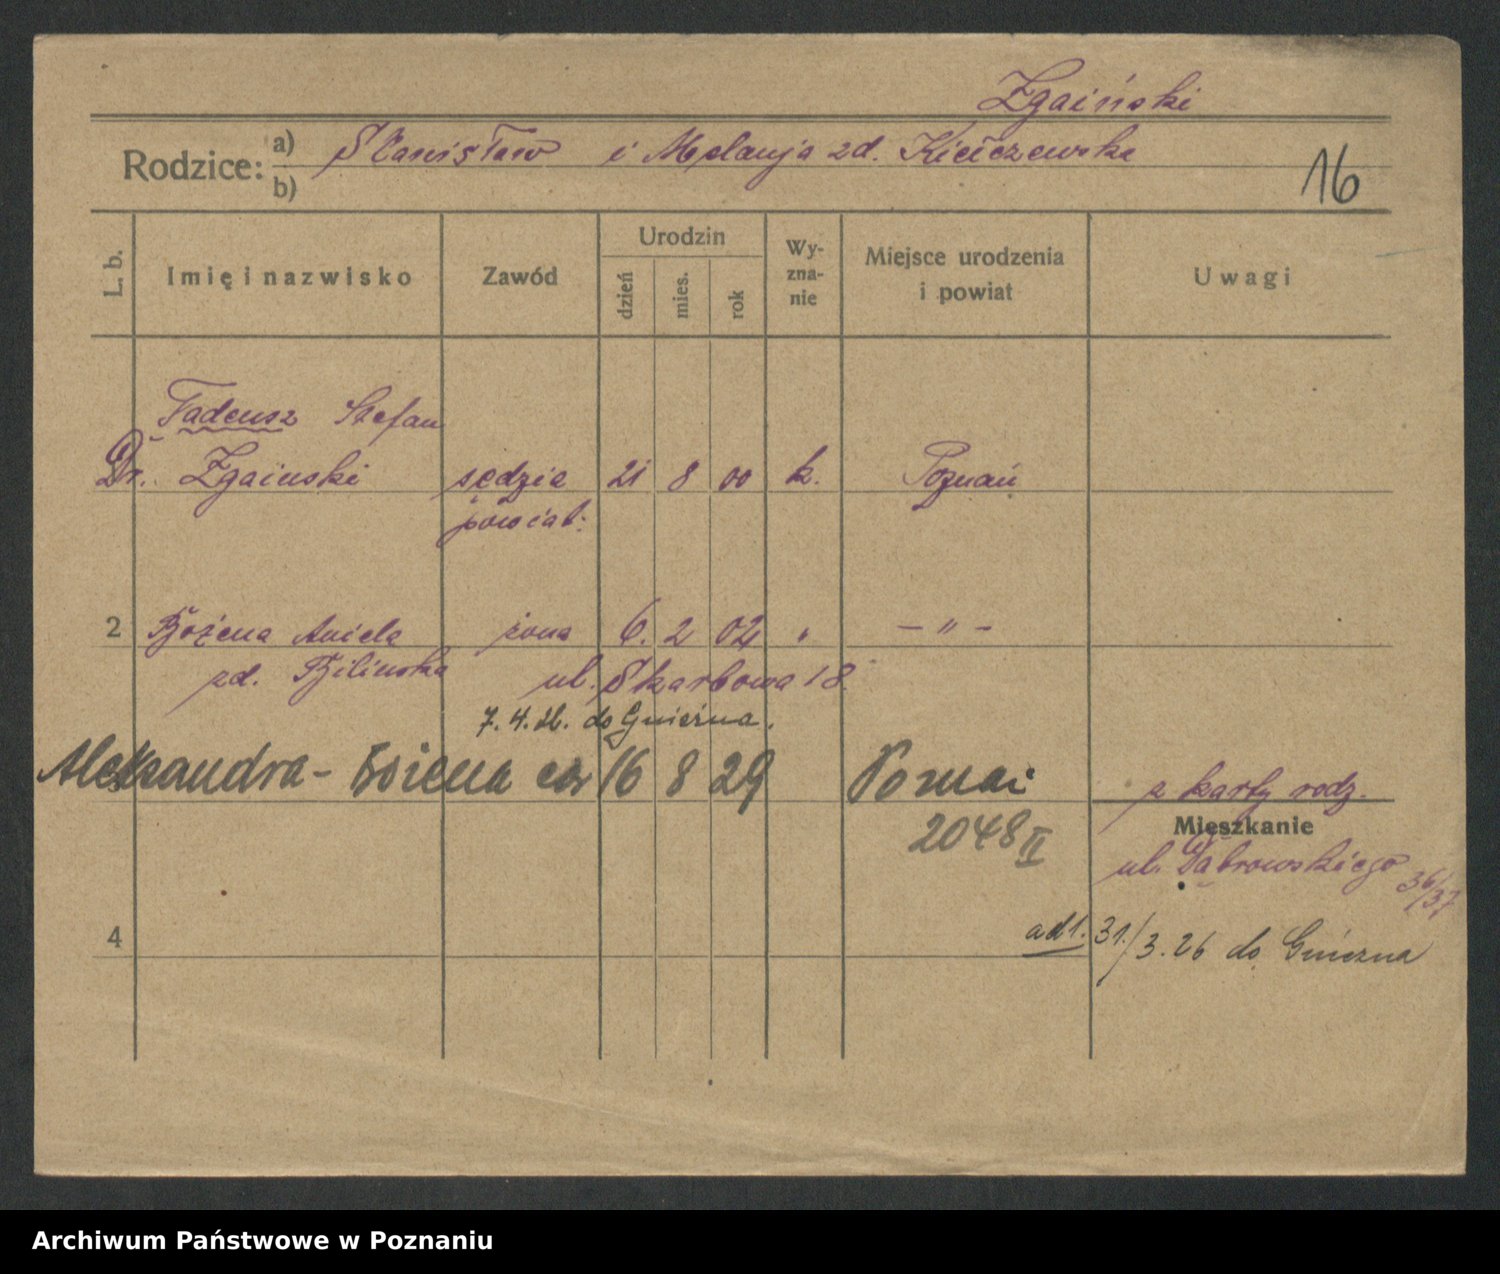 Zgaiński
Rodzice: a) Stanisław i Melanja zd. Kiełczewska
b)
16
L. b. Imię i nazwisko Zawód Urodzin dzień mies. rok Wyznanie Miejsce urodzenia i powiat Uwagi
Tadeusz Stefan
Dr. Zgainski sędzia 21 8 00 k. Poznań
powiat.
2 Bożena Aniela żona 6. 2 02 " — " —
zd. Bilinska ul. Skarbowa 18.
7. 4. do Gniezna.
Aleksandra - Bożena 16 8 29 Poznań z karty rodz.
2048 II Mieszkanie
ul. Dąbrowskiego 36/37
4 ad 1. 31./3. 26 do Gniezna
Archiwum Państwowe w Poznaniu